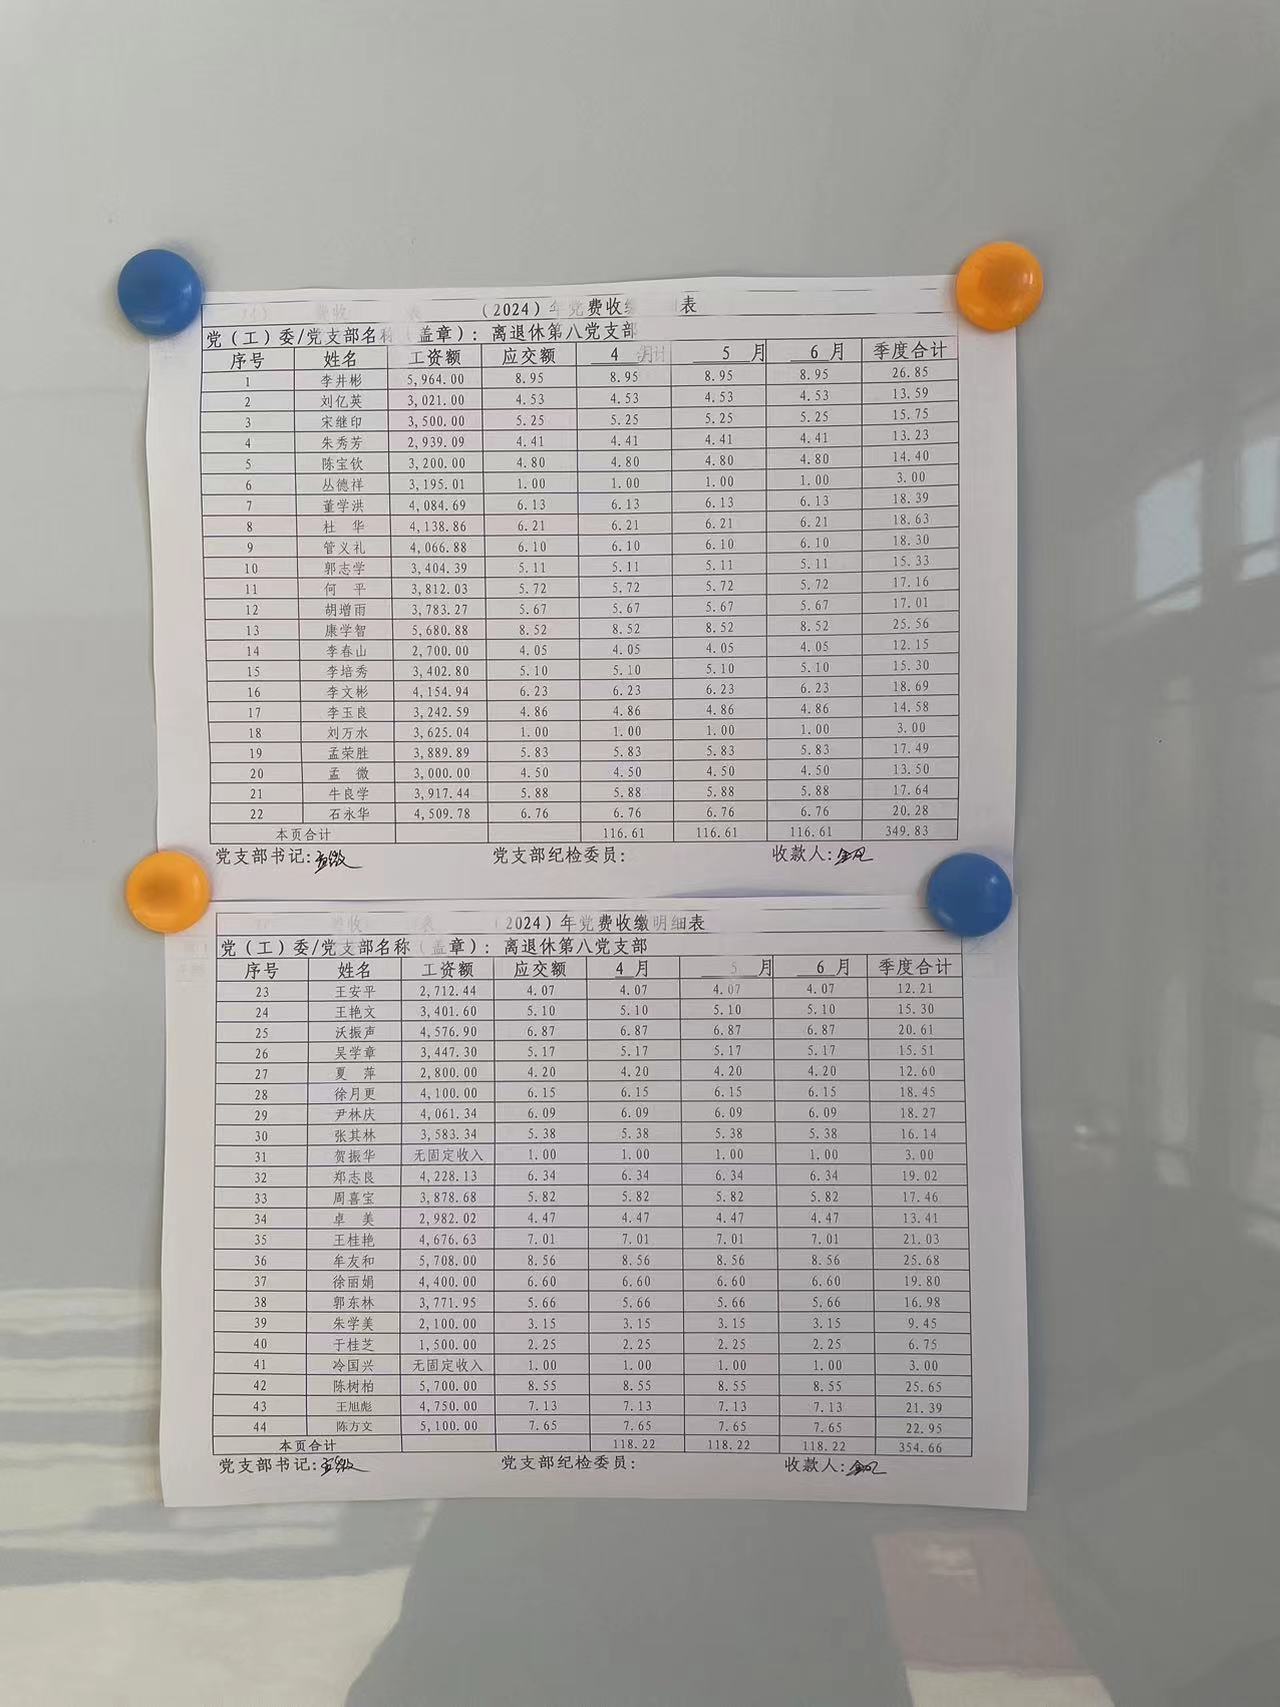 （2024）年党费收缴明细表
党（工）委/党支部名称（盖章）：离退休第八党支部
序号 姓名 工资额 应交额 4 月 5 月 6 月 季度合计
1 李井彬 5,964.00 8.95 8.95 8.95 8.95 26.85
2 刘亿英 3,021.00 4.53 4.53 4.53 4.53 13.59
3 宋继印 3,500.00 5.25 5.25 5.25 5.25 15.75
4 朱秀芳 2,939.09 4.41 4.41 4.41 4.41 13.23
5 陈宝钦 3,200.00 4.80 4.80 4.80 4.80 14.40
6 丛德祥 3,195.01 1.00 1.00 1.00 1.00 3.00
7 董学洪 4,084.69 6.13 6.13 6.13 6.13 18.39
8 杜 华 4,138.86 6.21 6.21 6.21 6.21 18.63
9 管义礼 4,066.88 6.10 6.10 6.10 6.10 18.30
10 郭志学 3,404.39 5.11 5.11 5.11 5.11 15.33
11 何 平 3,812.03 5.72 5.72 5.72 5.72 17.16
12 胡增雨 3,783.27 5.67 5.67 5.67 5.67 17.01
13 康学智 5,680.88 8.52 8.52 8.52 8.52 25.56
14 李春山 2,700.00 4.05 4.05 4.05 4.05 12.15
15 李培秀 3,402.80 5.10 5.10 5.10 5.10 15.30
16 李文彬 4,154.94 6.23 6.23 6.23 6.23 18.69
17 李玉良 3,242.59 4.86 4.86 4.86 4.86 14.58
18 刘万水 3,625.04 1.00 1.00 1.00 1.00 3.00
19 孟荣胜 3,889.89 5.83 5.83 5.83 5.83 17.49
20 孟 微 3,000.00 4.50 4.50 4.50 4.50 13.50
21 牛良学 3,917.44 5.88 5.88 5.88 5.88 17.64
22 石永华 4,509.78 6.76 6.76 6.76 6.76 20.28
本页合计 116.61 116.61 116.61 349.83
党支部书记: 党支部纪检委员: 收款人:
（2024）年党费收缴明细表
党（工）委/党支部名称（盖章）：离退休第八党支部
序号 姓名 工资额 应交额 4 月 5 月 6 月 季度合计
23 王安平 2,712.44 4.07 4.07 4.07 4.07 12.21
24 王艳文 3,401.60 5.10 5.10 5.10 5.10 15.30
25 沃振声 4,576.90 6.87 6.87 6.87 6.87 20.61
26 吴学章 3,447.30 5.17 5.17 5.17 5.17 15.51
27 夏 萍 2,800.00 4.20 4.20 4.20 4.20 12.60
28 徐月更 4,100.00 6.15 6.15 6.15 6.15 18.45
29 尹林庆 4,061.34 6.09 6.09 6.09 6.09 18.27
30 张其林 3,583.34 5.38 5.38 5.38 5.38 16.14
31 贺振华 无固定收入 1.00 1.00 1.00 1.00 3.00
32 郑志良 4,228.13 6.34 6.34 6.34 6.34 19.02
33 周喜宝 3,878.68 5.82 5.82 5.82 5.82 17.46
34 卓 美 2,982.02 4.47 4.47 4.47 4.47 13.41
35 王桂艳 4,676.63 7.01 7.01 7.01 7.01 21.03
36 牟友和 5,708.00 8.56 8.56 8.56 8.56 25.68
37 徐丽娟 4,400.00 6.60 6.60 6.60 6.60 19.80
38 郭东林 3,771.95 5.66 5.66 5.66 5.66 16.98
39 朱学美 2,100.00 3.15 3.15 3.15 3.15 9.45
40 于桂芝 1,500.00 2.25 2.25 2.25 2.25 6.75
41 冷国兴 无固定收入 1.00 1.00 1.00 1.00 3.00
42 陈树柏 5,700.00 8.55 8.55 8.55 8.55 25.65
43 王旭彪 4,750.00 7.13 7.13 7.13 7.13 21.39
44 陈方文 5,100.00 7.65 7.65 7.65 7.65 22.95
本页合计 118.22 118.22 118.22 354.66
党支部书记: 党支部纪检委员: 收款人: